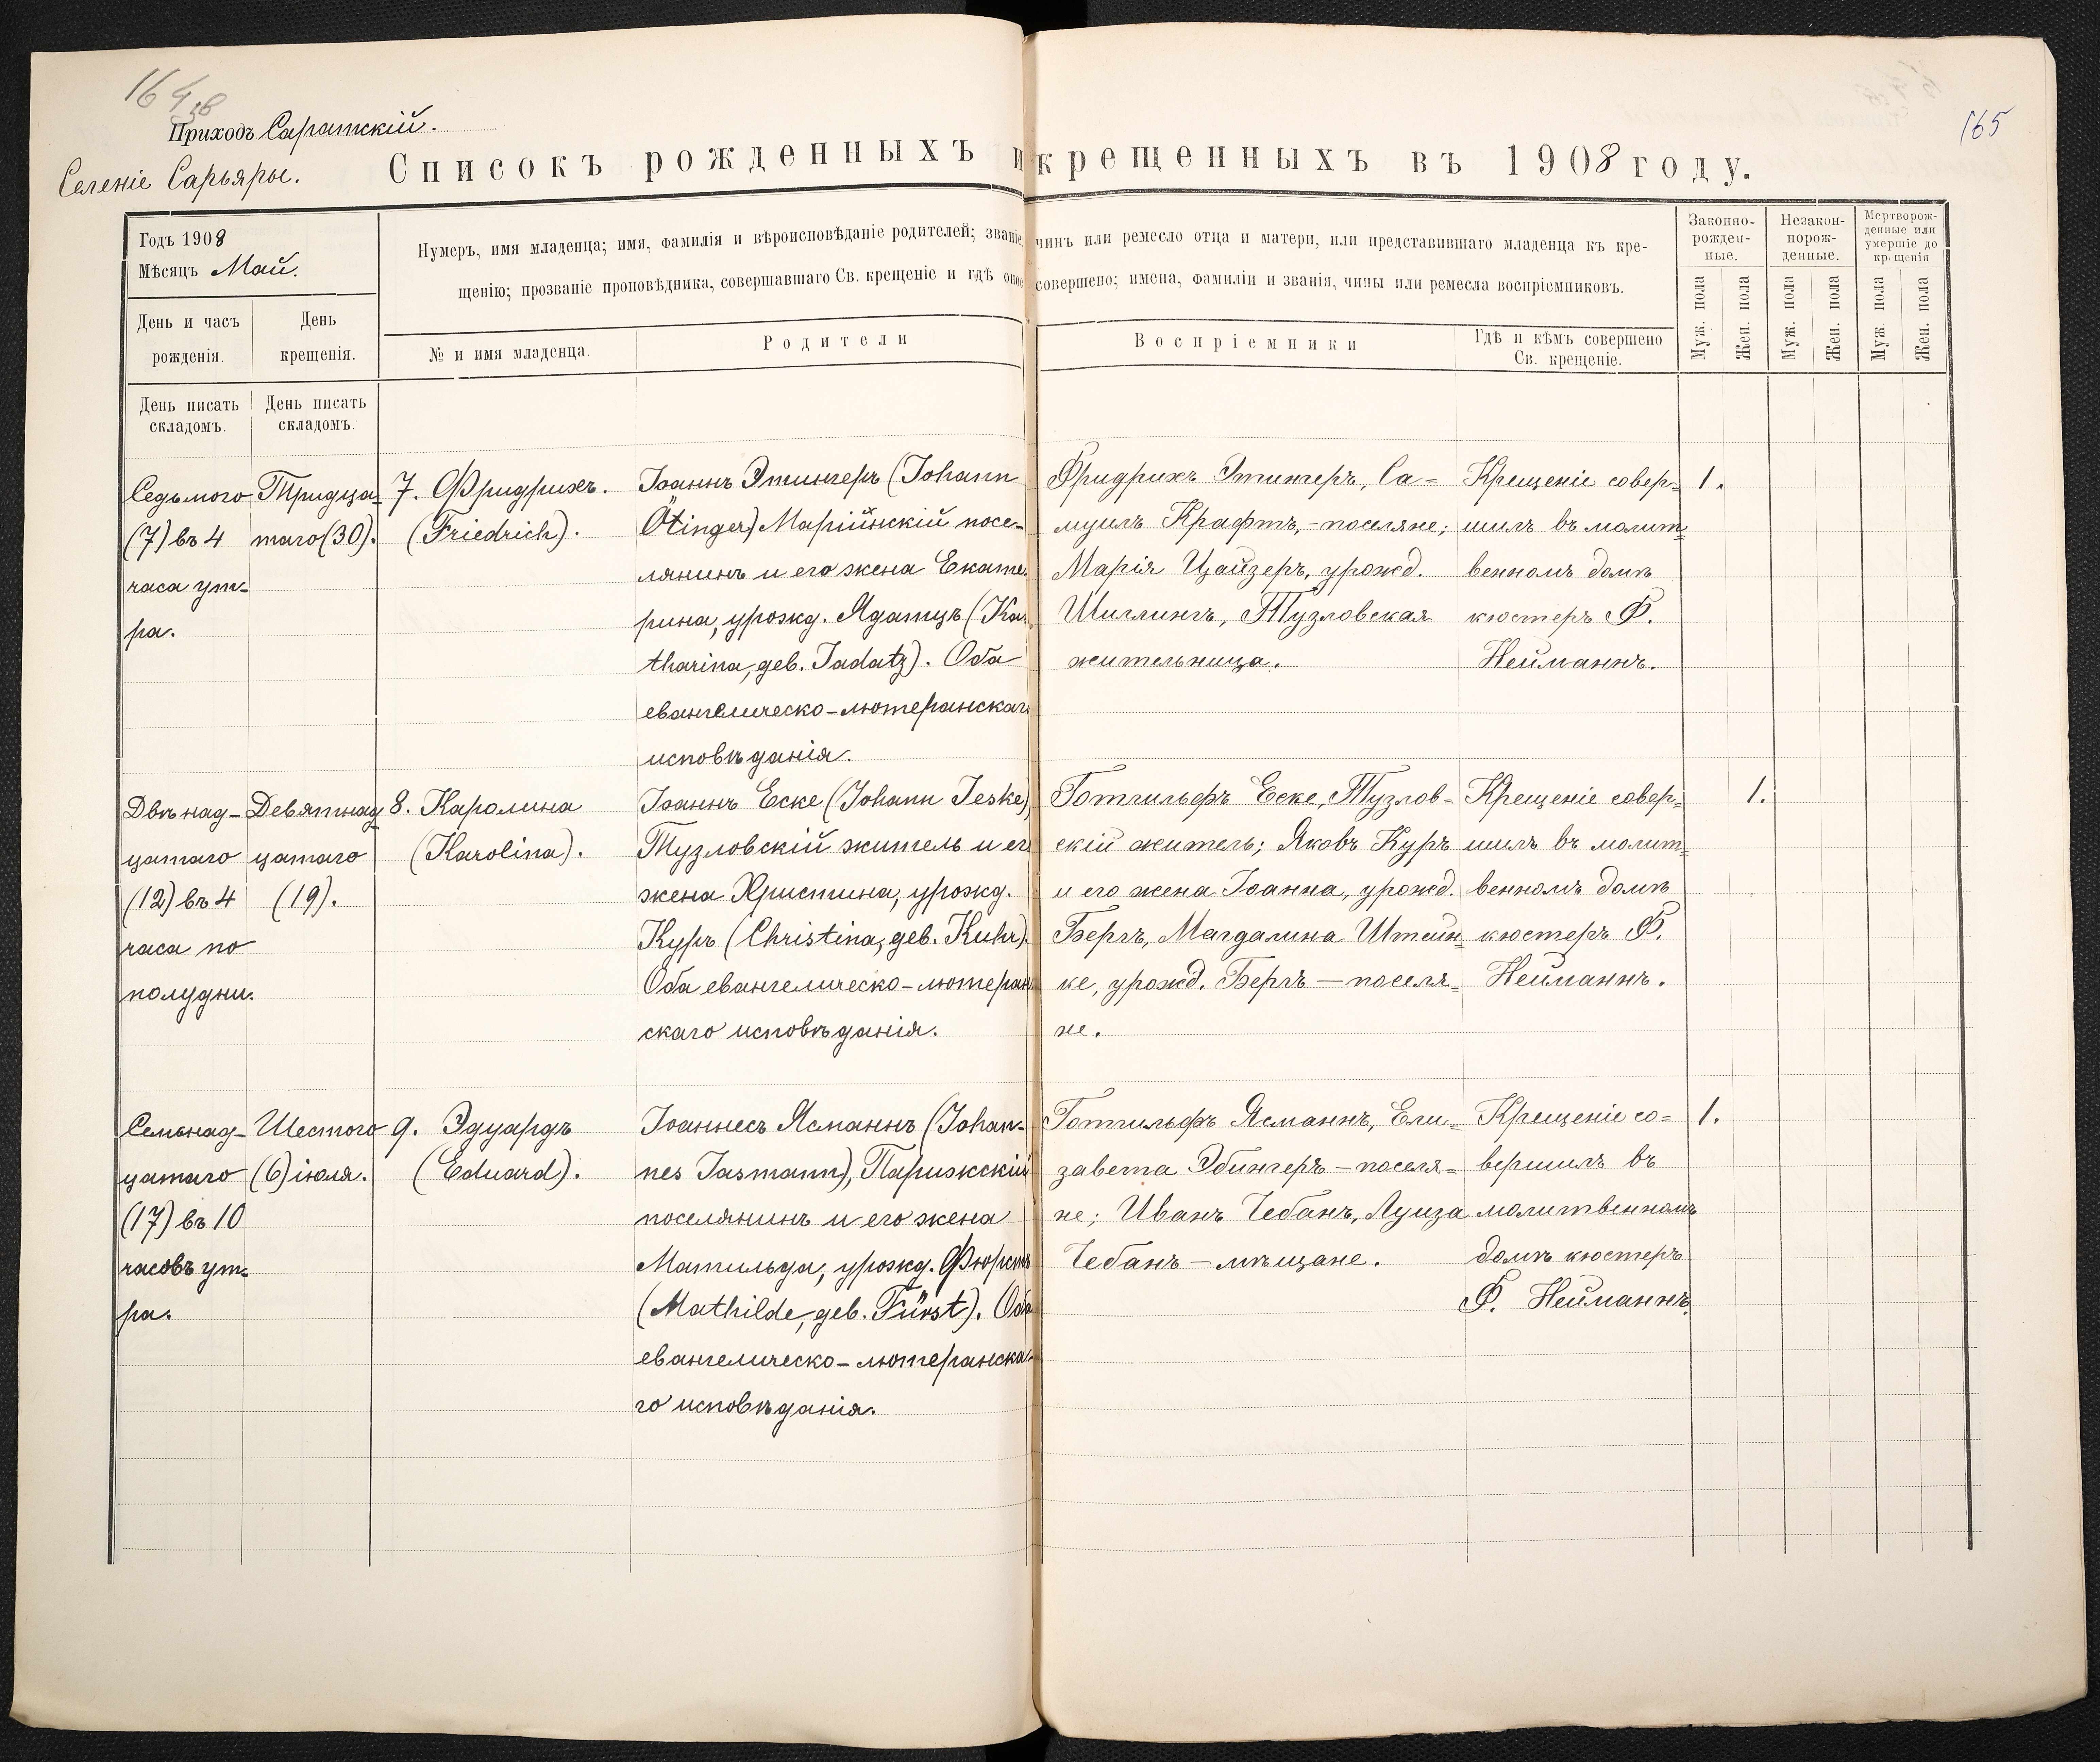 164 об
165
Приходъ Саратскій.
Селеніе Сарьяры.
Списокъ рожденныхъ и крещенныхъ въ 1908 году.
Годъ 1908
Мѣсяцъ Май.
Нумеръ, имя младенца; имя, фамилія и вѣроисповѣданіе родителей; званіе, чинъ или ремесло отца и матери, или представившаго младенца къ кре-
щенію; прозваніе проповѣдника, совершавшаго Св. крещеніе и гдѣ оное совершено; имена, фамиліи и званія, чины или ремесла воспріемниковъ.
Законно-
рожден-
ные.
Незакон-
норож-
денные.
Мертворож-
денные или
умершіе до
крещенія
День и часъ
рожденія.
День
крещенія.
№ и имя младенца.
Родители
Воспріемники
Гдѣ и кѣмъ совершено
Св. крещеніе.
Муж. пола
Жен. пола
Муж. пола
Жен. пола
Муж. пола
Жен. пола
День писать
складомъ.
День писать
складомъ.
Седьмого
(7) въ 4
часа ут-
ра.
Тридца-
таго (30).
7. Фридрихъ.
(Friedrich).
Іоаннъ Этингеръ (Johann
Ötinger) Маріинскій посе-
лянинъ и его жена Екате-
рина, урожд. Ядатцъ (Ka-
tharina, geb. Jadatz). Оба
евангелическо-лютеранскаго
исповѣданія.
Фридрихъ Этингеръ, Са-
муилъ Крафтъ, - поселяне;
Марія Цайзеръ, урожд.
Шиллингъ, Тузловская
жительница.
Крещеніе совер-
шилъ въ молит-
венномъ домѣ
кюстеръ Ф.
Нейманнъ.
1.
Двѣнад-
цатаго
(12) въ 4
часа по
полудни.
Девятнад-
цатаго
(19).
8. Каролина
(Karolina).
Іоаннъ Еске (Johann Jeske)
Тузловскій житель и его
жена Христина, урожд.
Куръ (Christina, geb. Kuhr).
Оба евангелическо-лютеран-
скаго исповѣданія.
Готгильфъ Еске, Тузлов-
скій житель; Яковъ Куръ
и его жена Іоанна, урожд.
Бергъ, Магдалина Штейн-
ке, урожд. Бергъ — поселя-
не.
Крещеніе совер-
шилъ въ молит-
венномъ домѣ
кюстеръ Ф.
Нейманнъ.
1.
Семнад-
цатаго
(17) въ 10
часовъ ут-
ра.
Шестого
(6) іюля.
9. Эдуардъ
(Eduard).
Іоаннесъ Ясманнъ (Johan-
nes Jasmann), Парижскій
поселянинъ и его жена
Матильда, урожд. Фюрстъ
(Mathilde, geb. Fürst). Оба
евангелическо-лютеранска-
го исповѣданія.
Готгильфъ Ясманнъ, Ели-
завета Эбингеръ — поселя-
не; Иванъ Чебанъ, Луиза
Чебанъ — мѣщане.
Крещеніе со-
вершилъ въ
молитвенномъ
домѣ кюстеръ
Ф. Нейманнъ.
1.